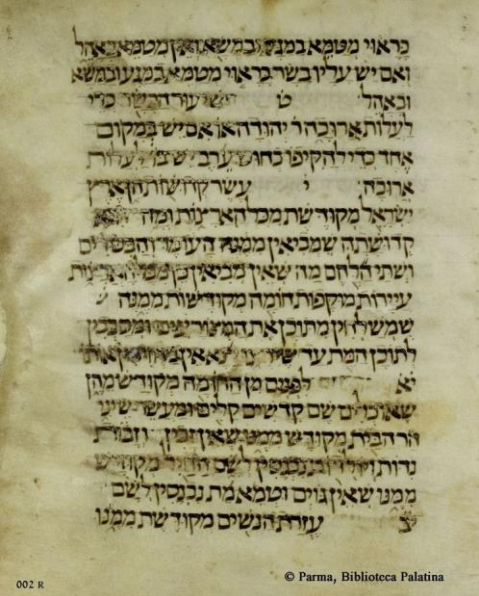 כראוי מטמא במגע ובמשא ואין מטמא באהל
ואם יש עליו בשר כראוי מטמא במגע ובמשא
ובאהל ט שיעור הבשר כדי
לעלות ארוכה ר יהודה או אם יש במקום
אחד כדי להקיפו כחוט ערב לעלות
ארוכה י עשר קדושות הן ארץ
ישראל מקודשת מכל הארצות ומה היא
קדושתה שמביאין ממנה העומר והבכורים
ושתי הלחם מה שאין מביאין כן מכל הארצות
עיירות מוקפות חומה מקודשות ממנה
שמשלחין מתוכן את המצורעים ומסבבין
לתוכן המת עד שירצו יצא אין מחזירין אותו
יא לפנים מן החומה מקודש מהן
שאוכלים שם קדשים קלים ומעשר שיני
הר הבית מקודש ממנו שאין זבין וזבות
נדות ויולדות נכנסין לשם החיל מקודש
ממנו שאין גוים וטמא מת נכנסין לשם
עזרת הנשים מקודשת ממנו
002 R
© Parma, Biblioteca Palatina